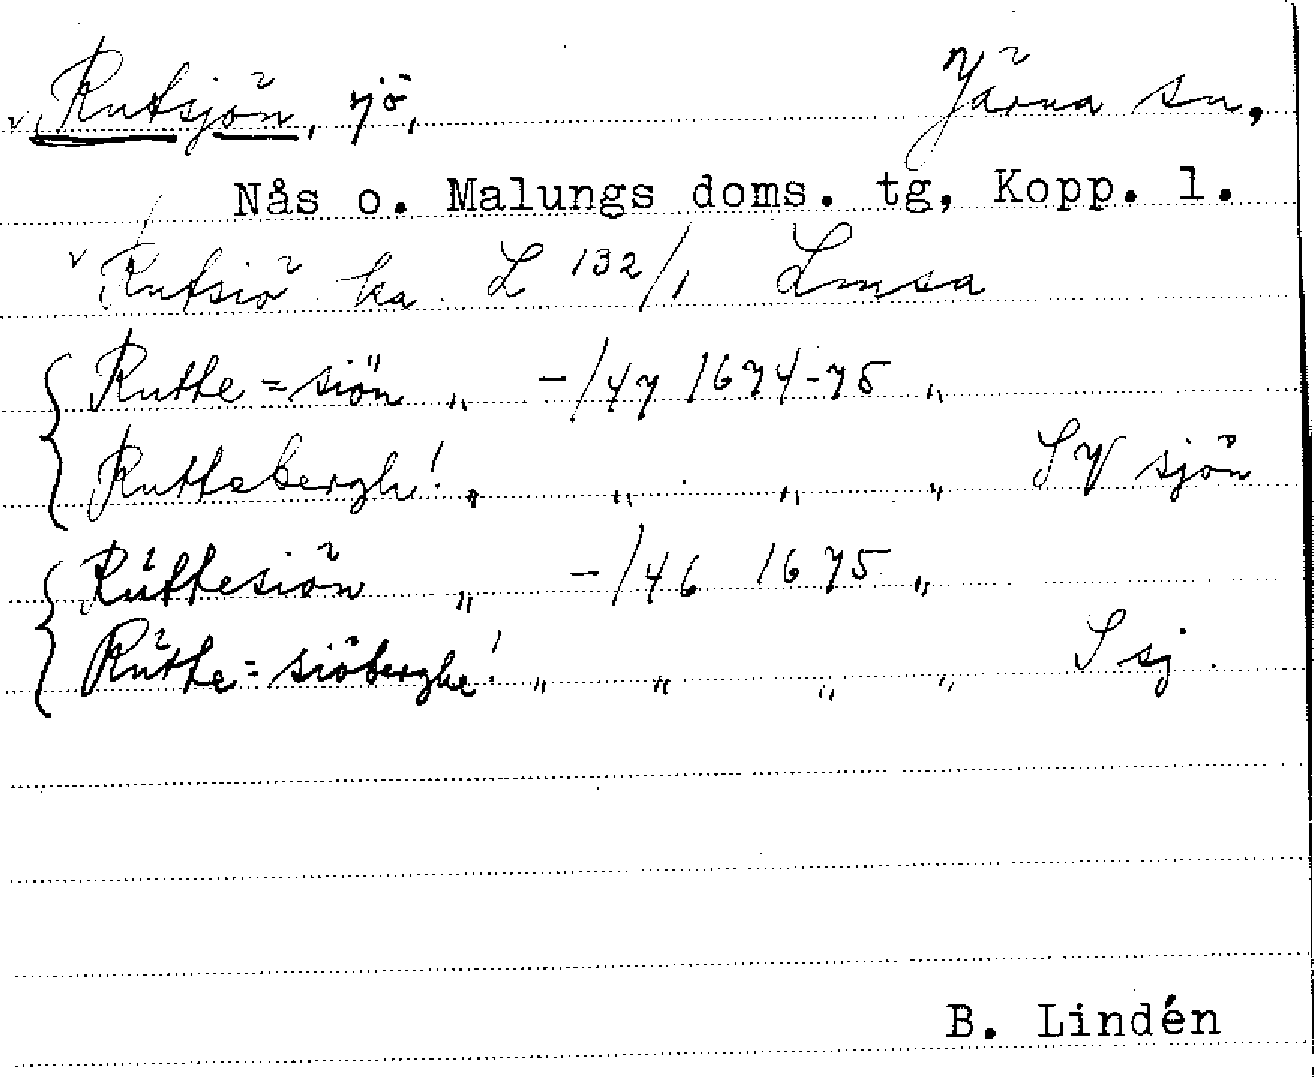 v Rutsjön, sjö, Järna sn,
Nås o. Malungs doms. tg, Kopp. l.
v Rutsiö ka L 132/1 Lmsa
Ruthe=siön „ -/47 1674-75 „
Ruttebergh! „ „ „ „ SV sjön
Rüttesiön „ -/46 1675 „
Rüthe=siöberghe! „ „ „ „ S sj.
B. Lindén